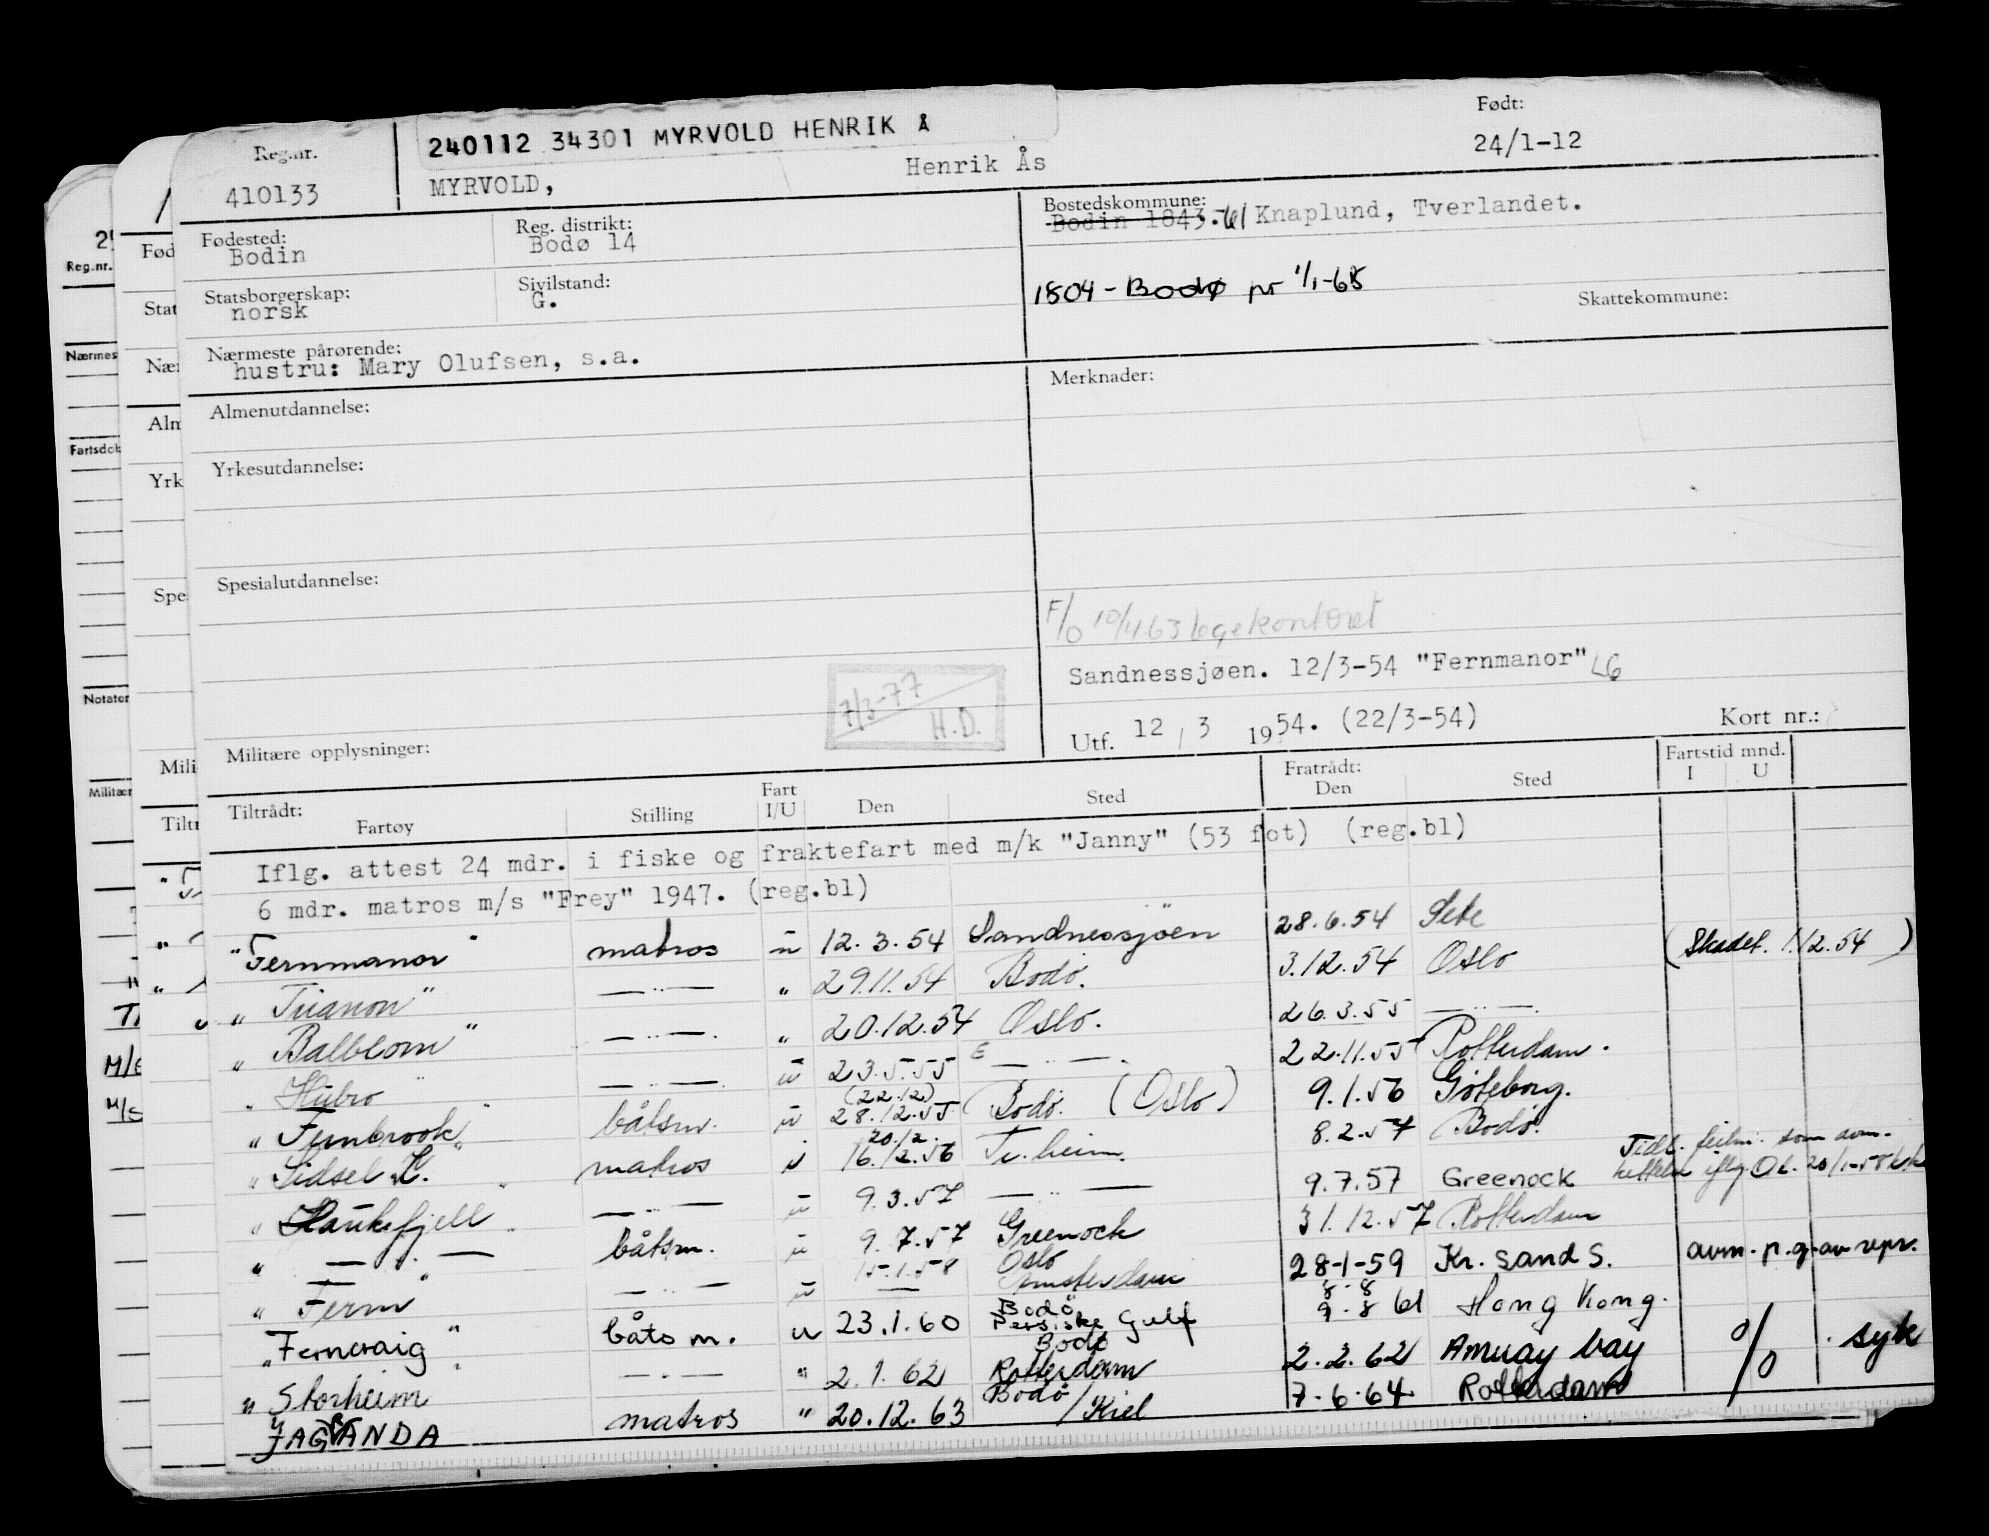 240112 34301 MYRVOLD HENRIK Å
Født:
Reg.nr.
24/1-12
Henrik Ås
410133
MYRVOLD,
Bostedskommune:
Bodin 1843.-61 Knaplund, Tverlandet.
Fødested:
Reg. distrikt:
Bodin
Bodø 14
Statsborgerskap:
Sivilstand:
norsk
G.
1804 - Bodø pr 1/1-68
Skattekommune:
Nærmeste pårørende:
hustru: Mary Olufsen, s.a.
Merknader:
Almenutdannelse:
Yrkesutdannelse:
Spesialutdannelse:
F/O 10/4 63 legekontoret
Sandnessjøen. 12/3-54 "Fernmanor" LG
7/3-77
H.D.
Utf. 12 / 3 1954. (22/3-54)
Kort nr.:
Militære opplysninger:
Tiltrådt:
Fartøy
Stilling
Fart I/U
Den
Sted
Fratrådt:
Den
Sted
Fartstid mnd.
I U
Iflg. attest 24 mdr. i fiske og fraktefart med m/k "Janny" (53 fot) (reg.bl)
6 mdr. matros m/s "Frey" 1947. (reg.bl)
"Fernmanor" matros u 12.3.54 Sandnessjöen 28.6.54 Sete
"Trianon" —"— " 29.11.54 Bodø. 3.12.54 Oslo (Skadet. 1.12.54)
"Balblom" —"— " 20.12.54 Oslo. 26.3.55 —"—.
"Hubro" —"— u 23.5.55 —"—. 22.11.55 Rotterdam.
(22.12)
"Fernbrook" båtsm. u 28.12.55 Bodø. (Oslo) 9.1.56 Göteborg.
20.12.
"Sidsel L." matros u 16.12.56 Tr.heim. 8.2.57 Bodø.
"Haukefjell" —"— u 9.3.57 —"— 9.7.57 Greenock
" —"— båtsm. u 9.7.57 Greenock 31.12.57 Rotterdam
15.1.58 Oslo
"Ferm" —"— u — Amsterdam 28-1-59 Kr. sand S. avm. p.g.av repr.
Bodø 8-8
"Ferncraig" båtsm. u 23.1.60 Persiske Gulf 9-8 61 Hong Kong.
Bodø
"Storheim" —"— " 2.1.62 Rotterdam 2.2.62 Amuay bay % syk
"JAGRANDA matros " 20.12.63 Bodø/Kiel 7.6.64 Rotterdam
Reg.nr.
Fød
Stat
Nærmes
Nær
Alm
Fartsdok
Yrk
Spe
Notater
Mili
Militær
Tiltr